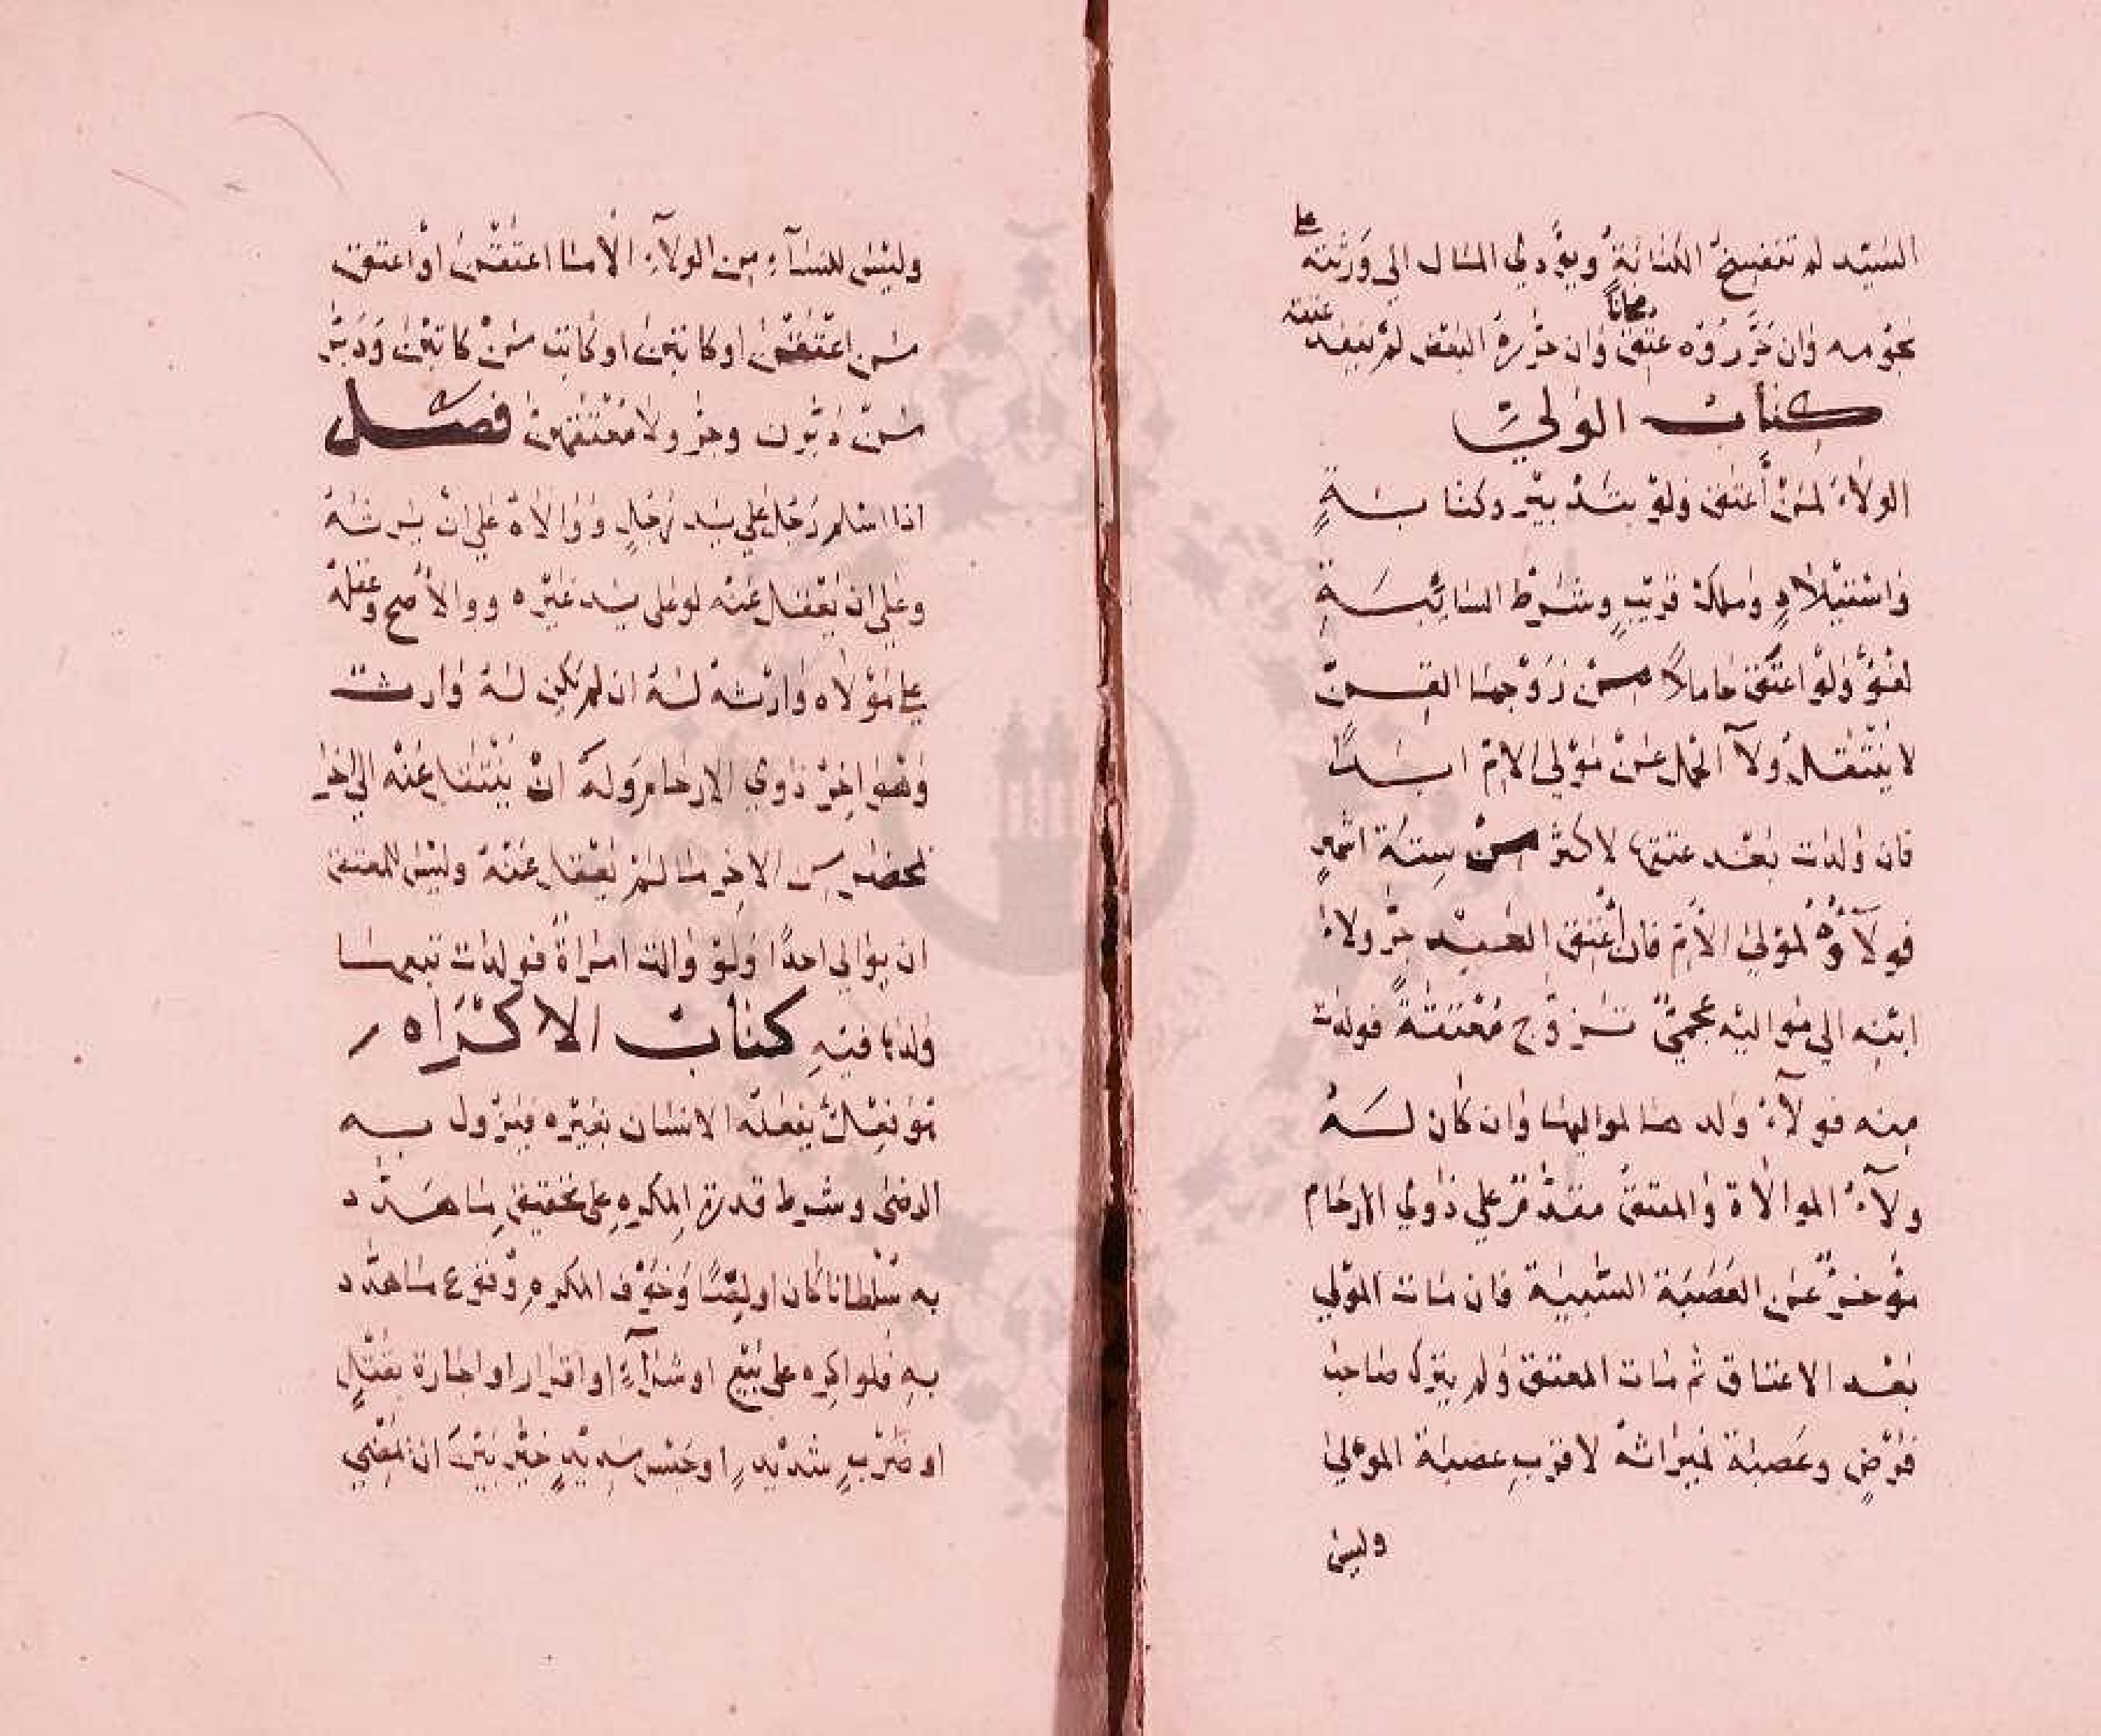 السيد لم تنفسخ الكتابة ويؤدي المال الى ورثته على
نجومه وان حرروه عتق مجانا وان حرره البعض لم ينفذ عتقه
كتاب الولى
الولاء لمن أعتق ولو بتدبير وكتابة
واستيلاد وملك قريب وشرط السائبة
لغو ولو اعتق حاملا من زوجها القن
لا ينتقل ولاء الحمل عن مولى الام ابدا
فان ولدت بعد عتقها لاكثر من ستة اشهر
فولاؤه لمولى الأم فان أعتق العبد جر ولاء
ابنه الى مواليه عجمي تزوج معتقة فولدت
منه فولاء ولدها لمواليها وان كان له
ولاء الموالاة والمعتق مقدم على ذوي الارحام
مؤخر عن العصبة النسبية فان مات المولى
بعد الاعتاق ثم مات المعتق ولم يترك صاحب
فرض وعصبة فميراثه لاقرب عصبة المولى
وليس
وليس للنساء من الولاء الا ما اعتقن او اعتق
من اعتقن او كاتبن او كاتب من كاتبن ودبر
من دبرن وجر ولا معتقهن فصل
اذا اسلم رجل على يد رجل ووالاه على ان يرثه
وعلى ان يعقل عنه او على يد غيره ووالاه صح وعقله
على مولاه وارثه له ان لم يكن له وارث
وهو اخر ذوي الارحام وله ان ينتقل عنه الى اخر
بمحضر من الاخر ما لم يعقل عنه وليس للمعتق
ان يوالي احدا ولو والت امراة فولدت تبعها
ولدها فيه كتاب الاكراه
هو فعل يفعله الانسان بغيره فيزول به
الرضى وشرط قدرة المكره على تحقيق ما هدد
به سلطانا كان او لصا وخوف المكره وقوع ما هدد
به فلو اكره على بيع او شراء او اقرار او اجارة بقتل
او ضرب شديد او حبس مديد خير بين ان يمضي